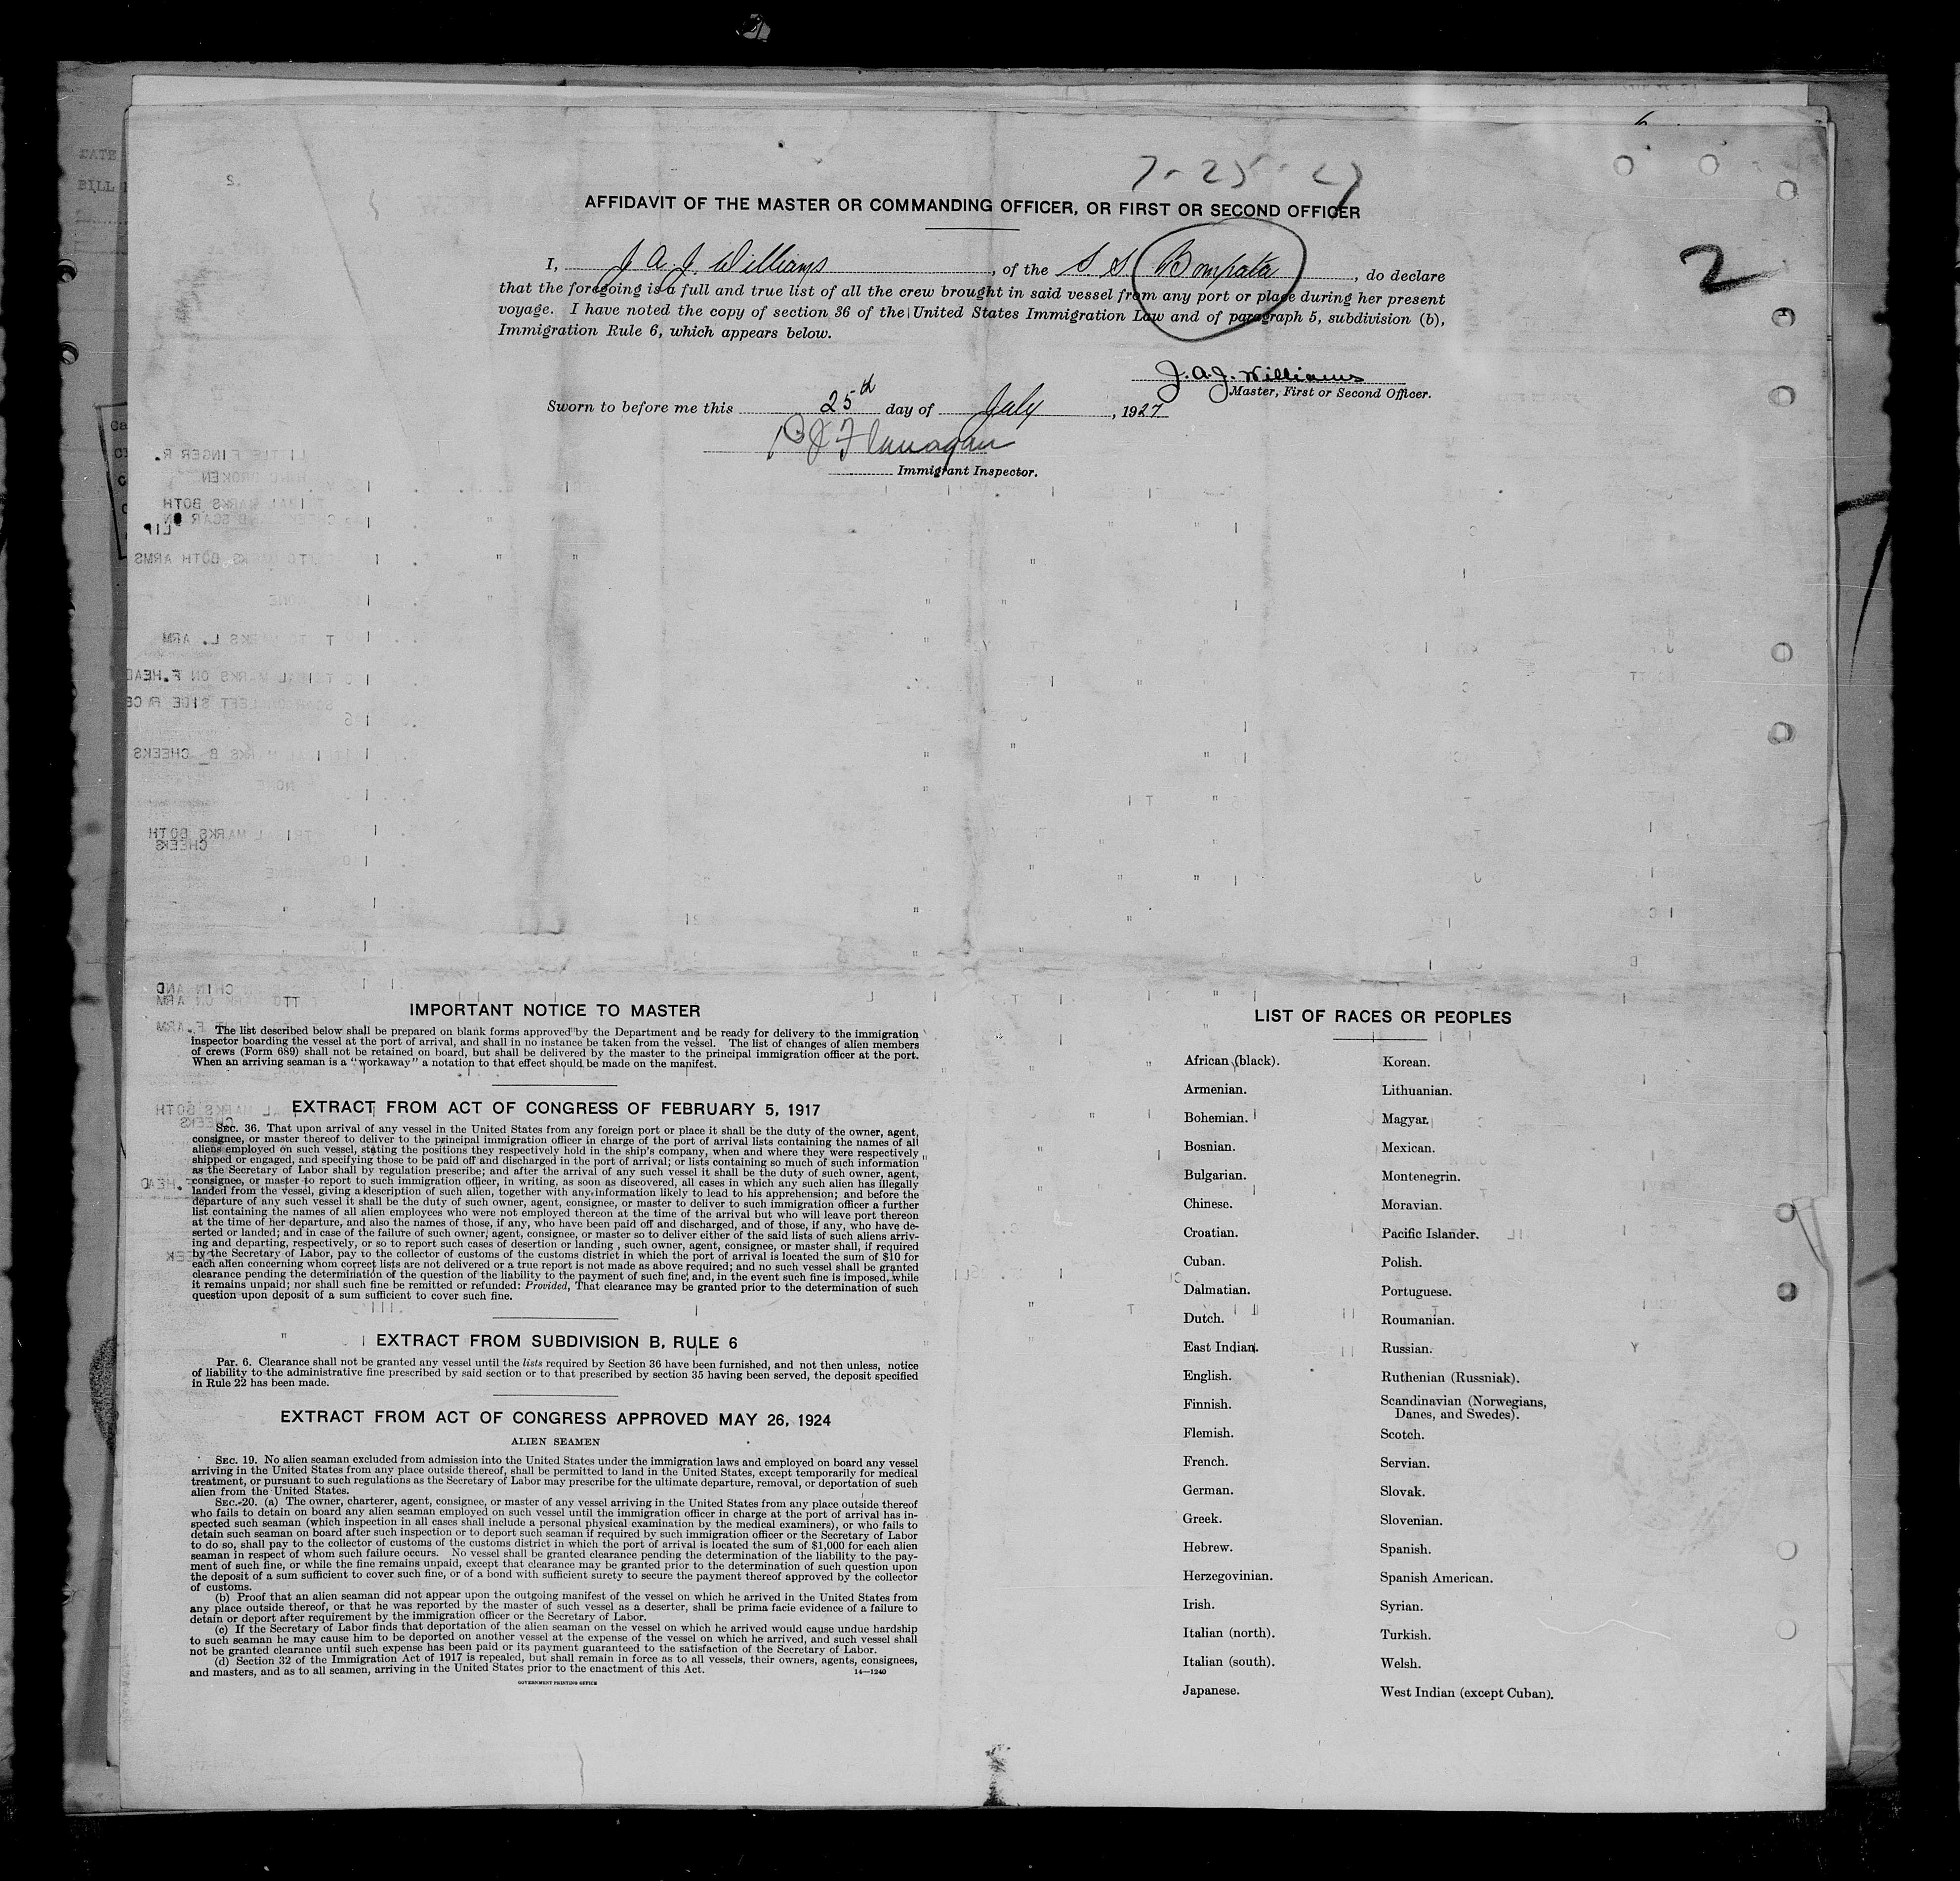 7-25-27
AFFIDAVIT OF THE MASTER OR COMMANDING OFFICER, OR FIRST OR SECOND OFFICER
2
I, J. A. J. Williams, of the S. S. Bompata, do declare
that the foregoing is a full and true list of all the crew brought in said vessel from any port or place during her present
voyage. I have noted the copy of section 36 of the United States Immigration Law and of paragraph 5, subdivision (b),
Immigration Rule 6, which appears below.
J. A. J. Williams
Master, First or Second Officer.
Sworn to before me this 25th day of July, 1927
P J Flanagan
Immigrant Inspector.
IMPORTANT NOTICE TO MASTER
The list described below shall be prepared on blank forms approved by the Department and be ready for delivery to the immigration
inspector boarding the vessel at the port of arrival, and shall in no instance be taken from the vessel. The list of changes of alien members
of crews (Form 689) shall not be retained on board, but shall be delivered by the master to the principal immigration officer at the port.
When an arriving seaman is a "workaway" a notation to that effect should be made on the manifest.
EXTRACT FROM ACT OF CONGRESS OF FEBRUARY 5, 1917
SEC. 36. That upon arrival of any vessel in the United States from any foreign port or place it shall be the duty of the owner, agent,
consignee, or master thereof to deliver to the principal immigration officer in charge of the port of arrival lists containing the names of all
aliens employed on such vessel, stating the positions they respectively hold in the ship's company, when and where they were respectively
shipped or engaged, and specifying those to be paid off and discharged in the port of arrival; or lists containing so much of such information
as the Secretary of Labor shall by regulation prescribe; and after the arrival of any such vessel it shall be the duty of such owner, agent,
consignee, or master to report to such immigration officer, in writing, as soon as discovered, all cases in which any such alien has illegally
landed from the vessel, giving a description of such alien, together with any information likely to lead to his apprehension; and before the
departure of any such vessel it shall be the duty of such owner, agent, consignee, or master to deliver to such immigration officer a further
list containing the names of all alien employees who were not employed thereon at the time of the arrival but who will leave port thereon
at the time of her departure, and also the names of those, if any, who have been paid off and discharged, and of those, if any, who have de-
serted or landed; and in case of the failure of such owner, agent, consignee, or master so to deliver either of the said lists of such aliens arriv-
ing and departing, respectively, or so to report such cases of desertion or landing, such owner, agent, consignee, or master shall, if required
by the Secretary of Labor, pay to the collector of customs of the customs district in which the port of arrival is located the sum of $10 for
each alien concerning whom correct lists are not delivered or a true report is not made as above required; and no such vessel shall be granted
clearance pending the determination of the question of the liability to the payment of such fine, and, in the event such fine is imposed, while
it remains unpaid; nor shall such fine be remitted or refunded: Provided, That clearance may be granted prior to the determination of such
question upon deposit of a sum sufficient to cover such fine.
EXTRACT FROM SUBDIVISION B, RULE 6
Par. 6. Clearance shall not be granted any vessel until the lists required by Section 36 have been furnished, and not then unless, notice
of liability to the administrative fine prescribed by said section or to that prescribed by section 35 having been served, the deposit specified
in Rule 22 has been made.
EXTRACT FROM ACT OF CONGRESS APPROVED MAY 26, 1924
ALIEN SEAMEN
SEC. 19. No alien seaman excluded from admission into the United States under the immigration laws and employed on board any vessel
arriving in the United States from any place outside thereof, shall be permitted to land in the United States, except temporarily for medical
treatment, or pursuant to such regulations as the Secretary of Labor may prescribe for the ultimate departure, removal, or deportation of such
alien from the United States.
SEC. 20. (a) The owner, charterer, agent, consignee, or master of any vessel arriving in the United States from any place outside thereof
who fails to detain on board any alien seaman employed on such vessel until the immigration officer in charge at the port of arrival has in-
spected such seaman (which inspection in all cases shall include a personal physical examination by the medical examiners), or who fails to
detain such seaman on board after such inspection or to deport such seaman if required by such immigration officer or the Secretary of Labor
to do so, shall pay to the collector of customs of the customs district in which the port of arrival is located the sum of $1,000 for each alien
seaman in respect of whom such failure occurs. No vessel shall be granted clearance pending the determination of the liability to the pay-
ment of such fine, or while the fine remains unpaid, except that clearance may be granted prior to the determination of such question upon
the deposit of a sum sufficient to cover such fine, or of a bond with sufficient surety to secure the payment thereof approved by the collector
of customs.
(b) Proof that an alien seaman did not appear upon the outgoing manifest of the vessel on which he arrived in the United States from
any place outside thereof, or that he was reported by the master of such vessel as a deserter, shall be prima facie evidence of a failure to
detain or deport after requirement by the immigration officer or the Secretary of Labor.
(c) If the Secretary of Labor finds that deportation of the alien seaman on the vessel on which he arrived would cause undue hardship
to such seaman he may cause him to be deported on another vessel at the expense of the vessel on which he arrived, and such vessel shall
not be granted clearance until such expense has been paid or its payment guaranteed to the satisfaction of the Secretary of Labor.
(d) Section 32 of the Immigration Act of 1917 is repealed, but shall remain in force as to all vessels, their owners, agents, consignees,
and masters, and as to all seamen, arriving in the United States prior to the enactment of this Act.
14—1240
GOVERNMENT PRINTING OFFICE
LIST OF RACES OR PEOPLES
African (black).
Armenian.
Bohemian.
Bosnian.
Bulgarian.
Chinese.
Croatian.
Cuban.
Dalmatian.
Dutch.
East Indian.
English.
Finnish.
Flemish.
French.
German.
Greek.
Hebrew.
Herzegovinian.
Irish.
Italian (north).
Italian (south).
Japanese.
Korean.
Lithuanian.
Magyar.
Mexican.
Montenegrin.
Moravian.
Pacific Islander.
Polish.
Portuguese.
Roumanian.
Russian.
Ruthenian (Russniak).
Scandinavian (Norwegians,
Danes, and Swedes).
Scotch.
Servian.
Slovak.
Slovenian.
Spanish.
Spanish American.
Syrian.
Turkish.
Welsh.
West Indian (except Cuban).